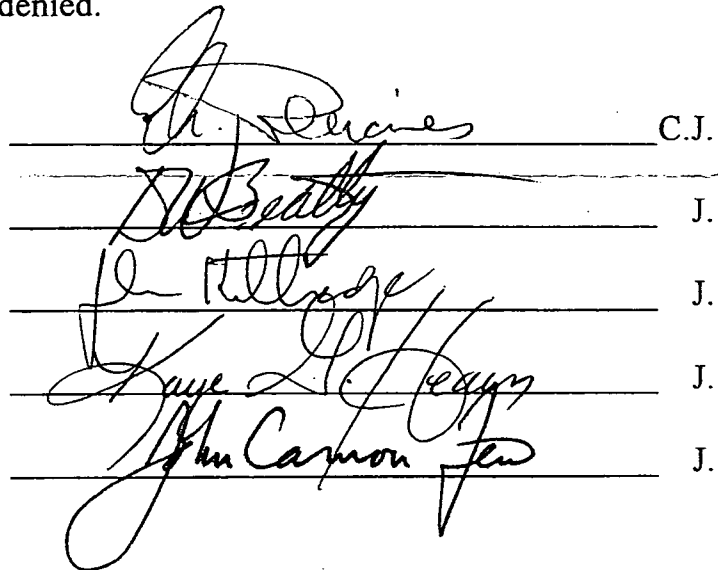 denied.
C.J.
DW Beatty J.
John Kittredge J.
Kaye G. Hearn J.
John Cannon Few J.